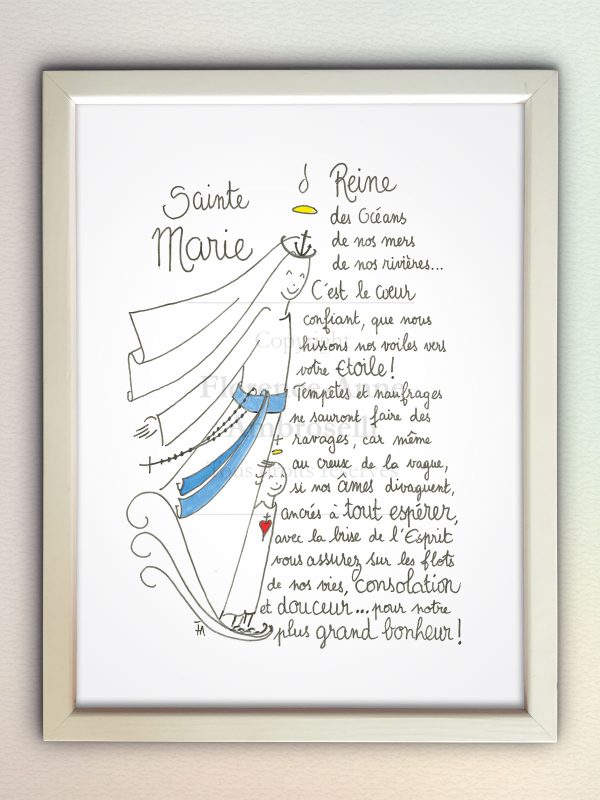 Sainte
Marie
Ô Reine
des Océans
de nos mers
de nos rivières...
C'est le coeur
confiant, que nous
hissons nos voiles vers
votre Etoile!
Tempêtes et naufrages
ne sauront faire des
ravages, car même
au creux de la vague,
si nos âmes divaguent,
ancrés à tout espérer,
avec la brise de l'Esprit
vous assurez sur les flots
de nos vies, consolation
et douceur... pour notre
plus grand bonheur!
Copyright
Florence-Anne
Ambroselli
Tous droits réservés